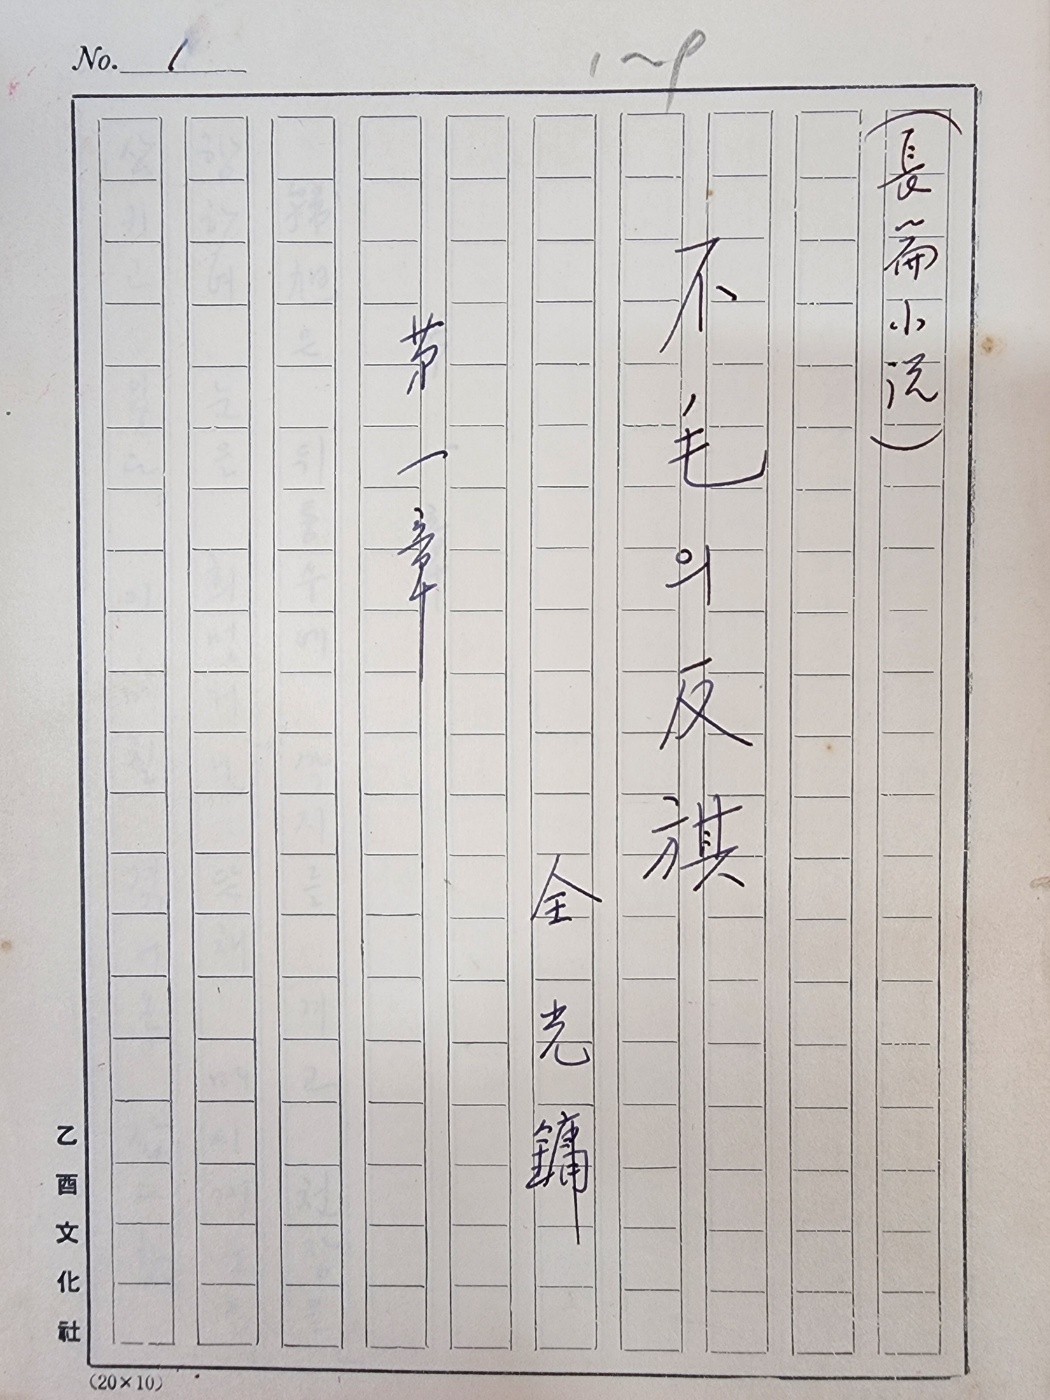 No. 1
1~9
(長篇小說)
不毛의 反旗
全光鏞
第一章
乙酉文化社
(20×10)